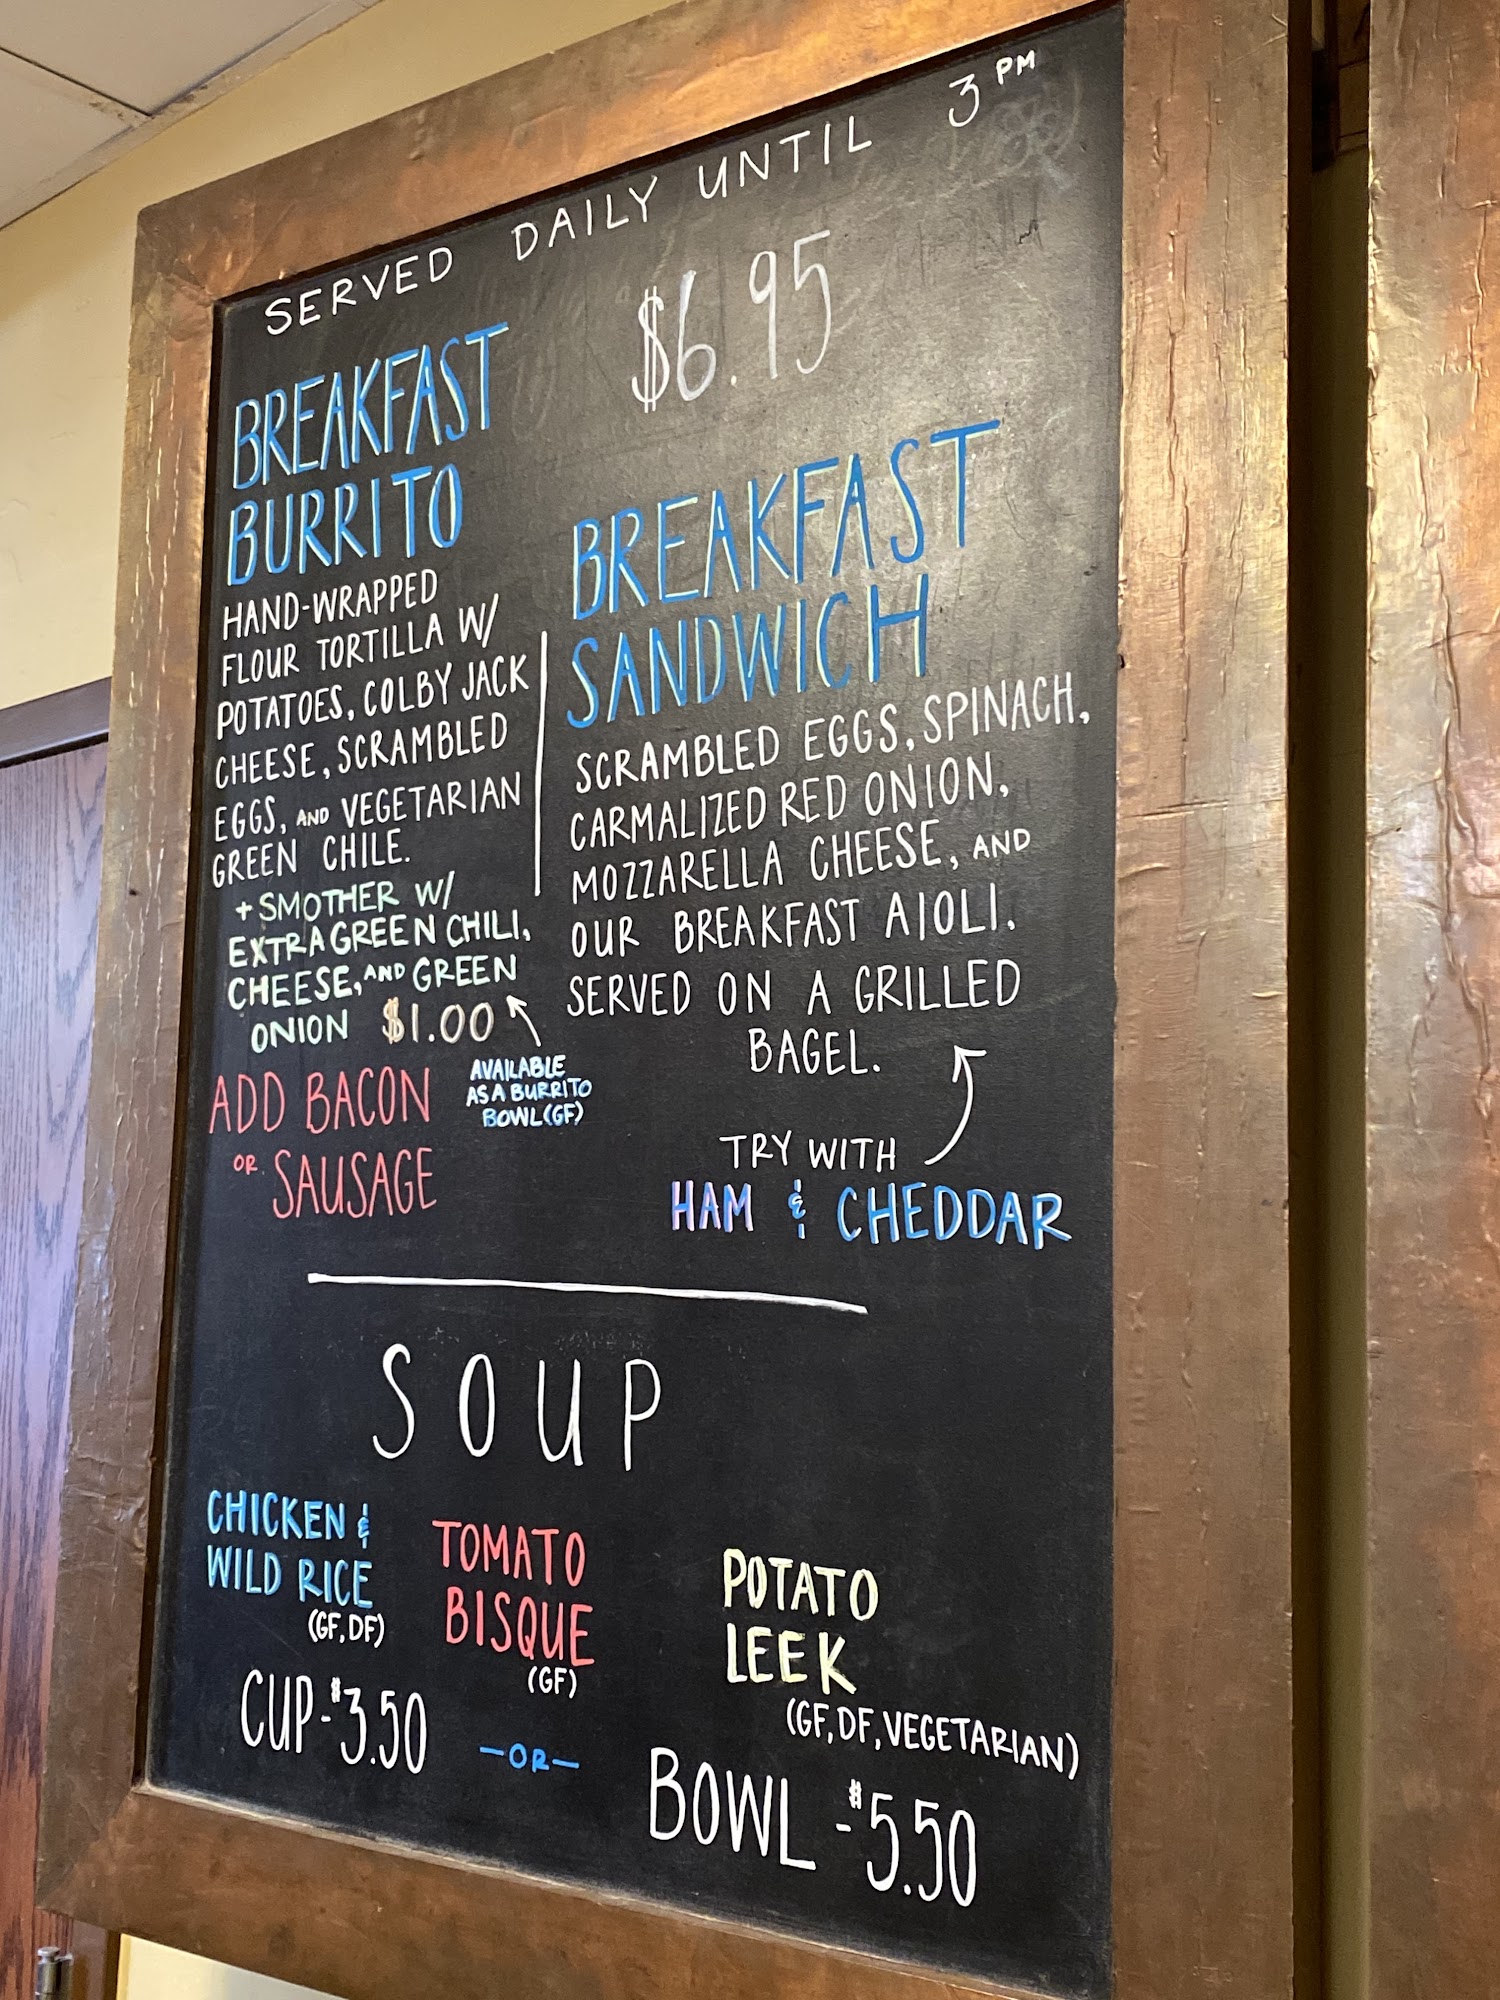 SERVED DAILY UNTIL 3 PM
$6.95
BREAKFAST
BURRITO
HAND-WRAPPED
FLOUR TORTILLA W/
POTATOES, COLBY JACK
CHEESE, SCRAMBLED
EGGS, AND VEGETARIAN
GREEN CHILE.
+ SMOTHER W/
EXTRA GREEN CHILI,
CHEESE, AND GREEN
ONION $1.00
AVAILABLE
AS A BURRITO
BOWL (GF)
ADD BACON
OR SAUSAGE
BREAKFAST
SANDWICH
SCRAMBLED EGGS, SPINACH,
CARMALIZED RED ONION,
MOZZARELLA CHEESE, AND
OUR BREAKFAST AIOLI.
SERVED ON A GRILLED
BAGEL.
TRY WITH
HAM & CHEDDAR
SOUP
CHICKEN &
WILD RICE
(GF, DF)
TOMATO
BISQUE
(GF)
POTATO
LEEK
(GF, DF, VEGETARIAN)
CUP - $3.50
- OR -
BOWL - $5.50